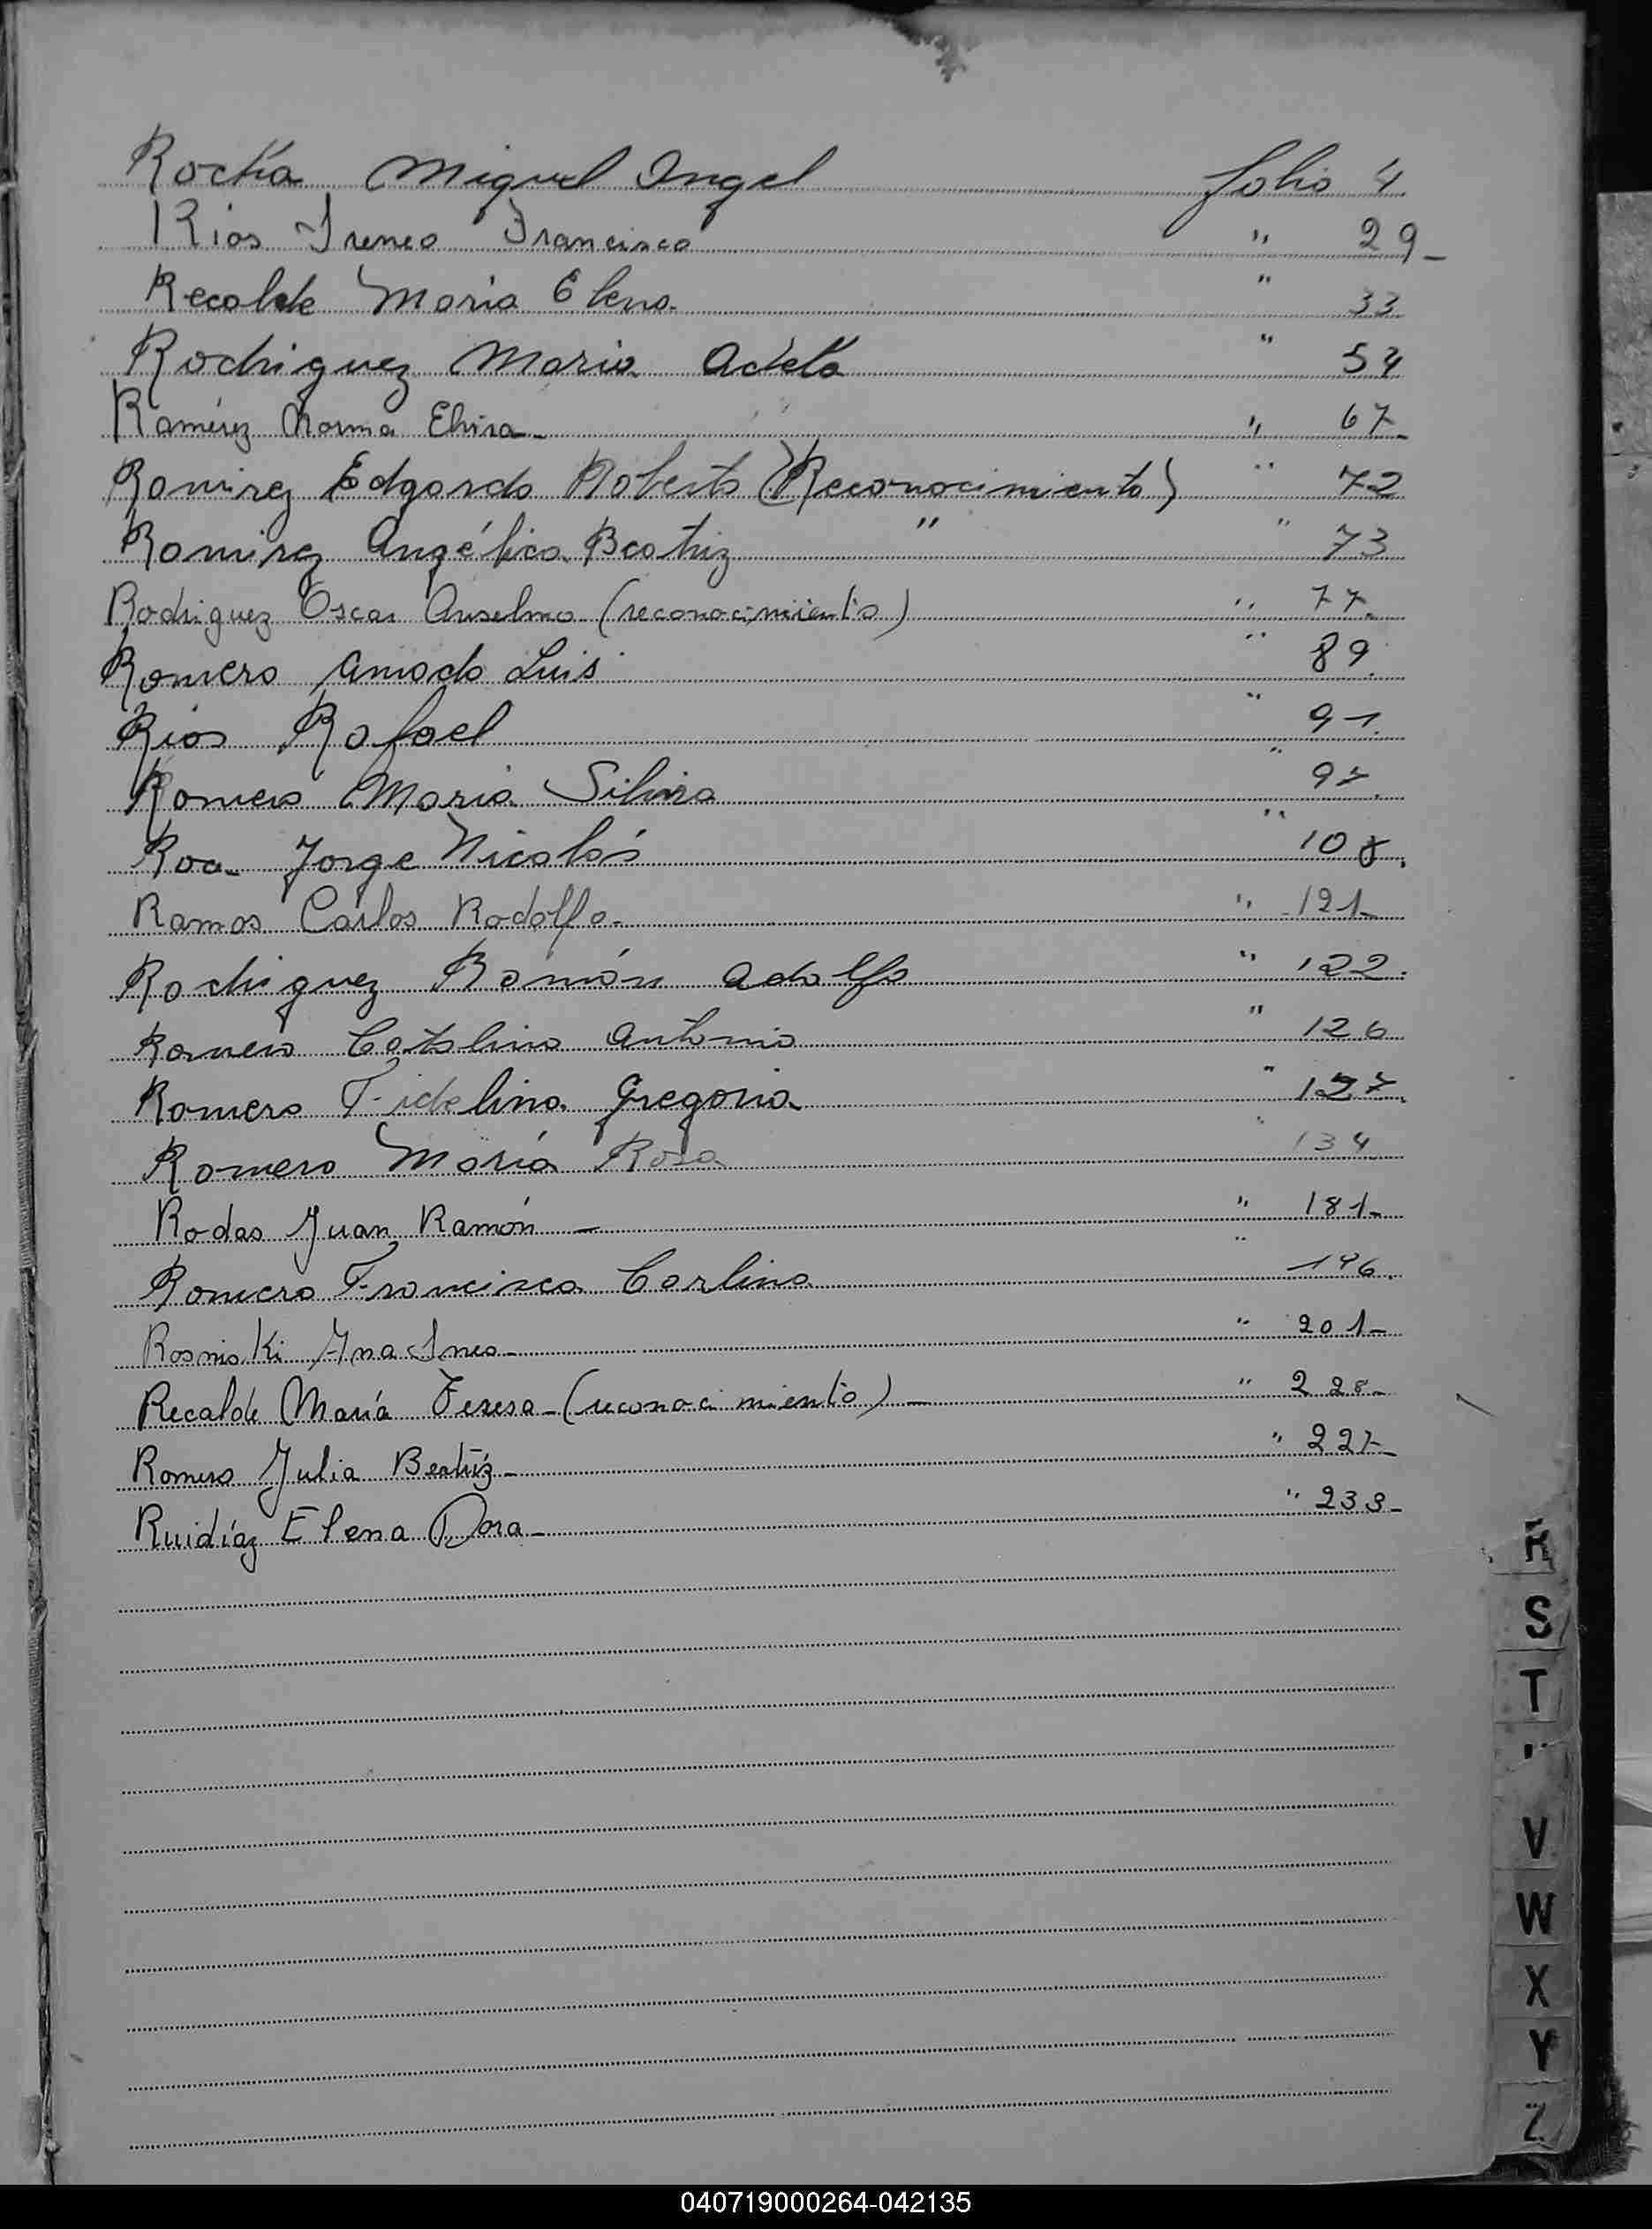 Rocha Miguel Angel folio 4
Rios Ireneo Francisco " 29_
Recalde Maria Elena " 33
Rodriguez Maria Adela " 54
Ramirez Norma Elvira_ " 67_
Ramirez Edgardo Roberto (Reconocimiento) " 72
Ramirez Angélica Beatriz " " 73
Rodriguez Oscar Anselmo (reconocimiento) " 77.
Romero Amado Luis " 89.
Rios Rafael " 91.
Romero Maria Silvia " 97.
Roa Jorge Nicolás " 108.
Ramos Carlos Rodolfo_ " 121_
Rodriguez Ramón Adolfo " 122.
Romero Catalino Antonio " 126
Romero Fidelina Gregoria " 127.
Romero María Rosa " 134
Rodas Juan Ramón _ " 181_
Romero Francisca Carlina " 196.
Ana Ines_ " 201_
Recalde María Teresa_(reconocimiento)_ " 228_
Romero Julia Beatríz_ " 227_
Ruidíaz Elena Dora_ " 233_
R
S
T
V
W
X
Y
Z
040719000264-042135